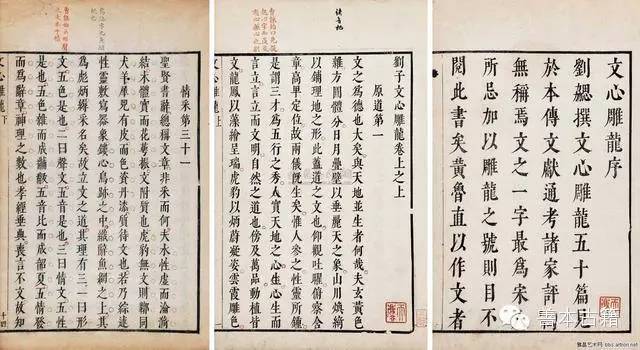 文心雕龍序
劉勰撰文心雕龍五十篇見
於本傳文獻通考諸家評
無稱焉文之一字最為宋
所忌加以雕龍之號則目不
閱此書矣黃魯直以作文者
劉子文心雕龍卷上之上
原道第一
文之為德也大矣與天地並生者何哉夫玄黃色
雜方圓體分日月疊璧以垂麗天之象山川煥綺
以鋪理地之形此蓋道之文也仰觀吐曜俯察含
章高卑定位故兩儀既生矣惟人參之性靈所鍾
是謂三才為五行之秀人實天地之心生心生而
言立言立而文明自然之道也傍及萬品動植皆
文龍鳳以藻繪呈瑞虎豹以炳蔚凝姿雲霞雕色
文心雕龍上
情采第三十一
聖賢書辭總稱文章非采而何夫水性虛而淪漪
結木體實而花萼振文附質也虎豹無文則鞟同
犬羊犀兕有皮而色資丹漆質待文也若乃綜述
性靈敷寫器象鏤心鳥跡之中織辭魚網之上其
為彪炳縟采名矣故立文之道其理有三一曰形
文五色是也二曰聲文五音是也三曰情文五性
是也五色雜而成黼黻五音比而成韶夏五情發
而為辭章神理之數也孝經垂典喪言不文故知
文心雕龍下
十四
善本古籍
雅昌艺术网 bbs.artron.net